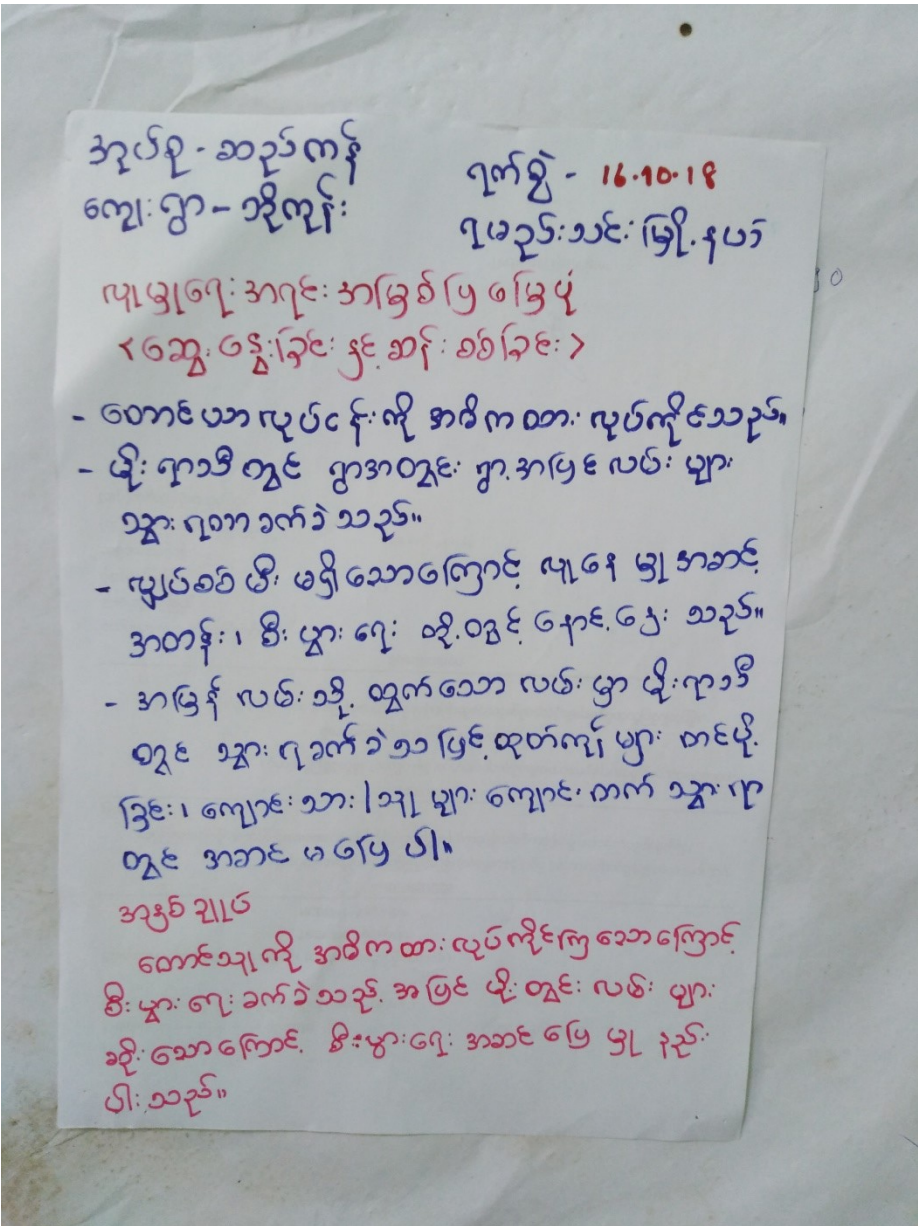 အုပ်စု - ဆည်ကန်
ကျေးရွာ - သိုကုန်း
ရက်စွဲ - 16.10.18
ရမည်းသင်းမြို့နယ်
လူမှုရေး အရင်းအမြစ်ပြမြေပုံ
<ဆွေးနွေးခြင်းနှင့်ဆန်းစစ်ခြင်း>
- တောင်ယာလုပ်ငန်းကို အဓိကထား လုပ်ကိုင်သည်။
- မိုးရာသီတွင် ရွာအတွင်း ရွာ့အပြင်လမ်းများ
သွားရတာခက်ခဲသည်။
- လျှပ်စစ်မီး မရှိသောကြောင့် လူနေမှုအဆင့်
အတန်း၊ စီးပွားရေး တို့တွင် နှောင့်နှေးသည်။
- အမြန်လမ်းသို့ ထွက်သောလမ်းမှာ မိုးရာသီ
တွင် သွားရခက်ခဲသဖြင့် ထုတ်ကုန်များ တင်ပို့
ခြင်း၊ ကျောင်းသား/သူများ ကျောင်းတက် သွားရာ
တွင် အဆင်မပြေပါ။
အနှစ်ချုပ်
တောင်သူကို အဓိကထားလုပ်ကိုင်ကြသောကြောင့်
စီးပွားရေးခက်ခဲသည့်အပြင် မိုးတွင်းလမ်းများ
ဆိုးသောကြောင့် စီးပွားရေး အဆင်ပြေမှု နည်း
ပါးသည်။